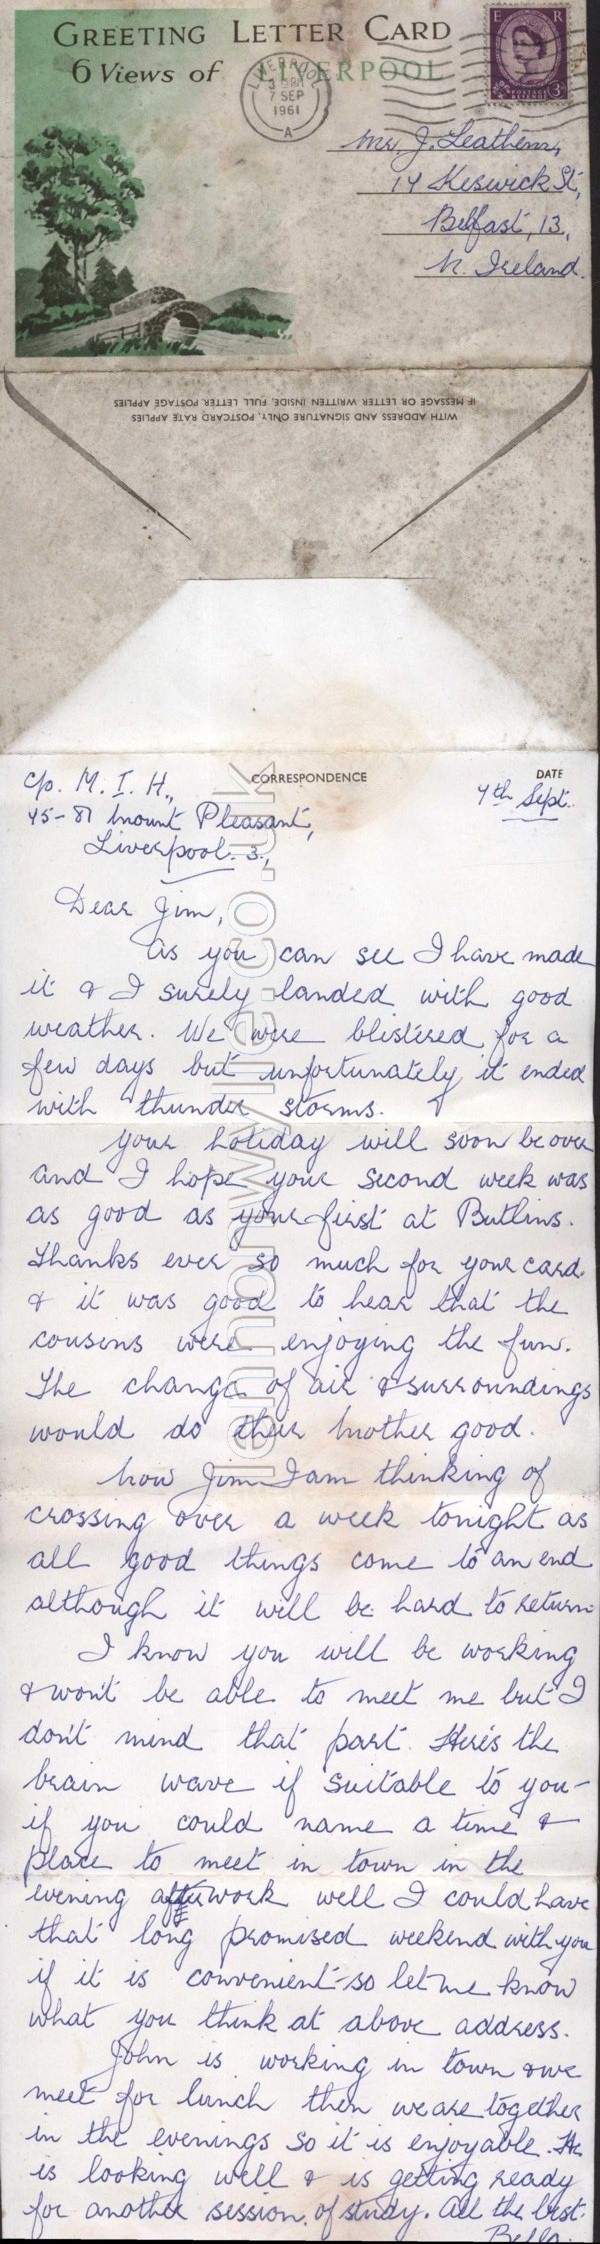 GREETING LETTER CARD
6 Views of LIVERPOOL
E R
POSTAGE
REVENUE
3D
LIVERPOOL
7 SEP
1961
A
Mr. J. Leathem,
14 Keswick St,
Belfast, 13,
N. Ireland.
IF MESSAGE OR LETTER WRITTEN INSIDE, FULL LETTER POSTAGE APPLIES
WITH ADDRESS AND SIGNATURE ONLY, POSTCARD RATE APPLIES
c/o. M. I. H.,
CORRESPONDENCE
DATE
7th Sept.
45-81 Mount Pleasant,
Liverpool. 3.,
Dear Jim,
As you can see I have made
it & I surely landed with good
weather. We were blistered for a
few days but unfortunately it ended
with thunder storms.
Your holiday will soon be over
and I hope your second week was
as good as your first at Butlins.
Thanks ever so much for your card.
& it was good to hear that the
cousins were enjoying the fun.
The change of air & surroundings
would do their Mother good.
Now Jim I am thinking of
crossing over a week tonight as
all good things come to an end
although it will be hard to return
I know you will be working
& won't be able to meet me but I
don't mind that part. Here's the
brain wave if suitable to you -
if you could name a time &
place to meet in town in the
evening after work well I could have
that long promised weekend with you
if it is convenient - so let me know
what you think at above address.
John is working in town & we
meet for lunch then we are together
in the evenings so it is enjoyable. He
is looking well & is getting ready
for another session of study. All the best.
Bella.
lennonwylie.co.uk